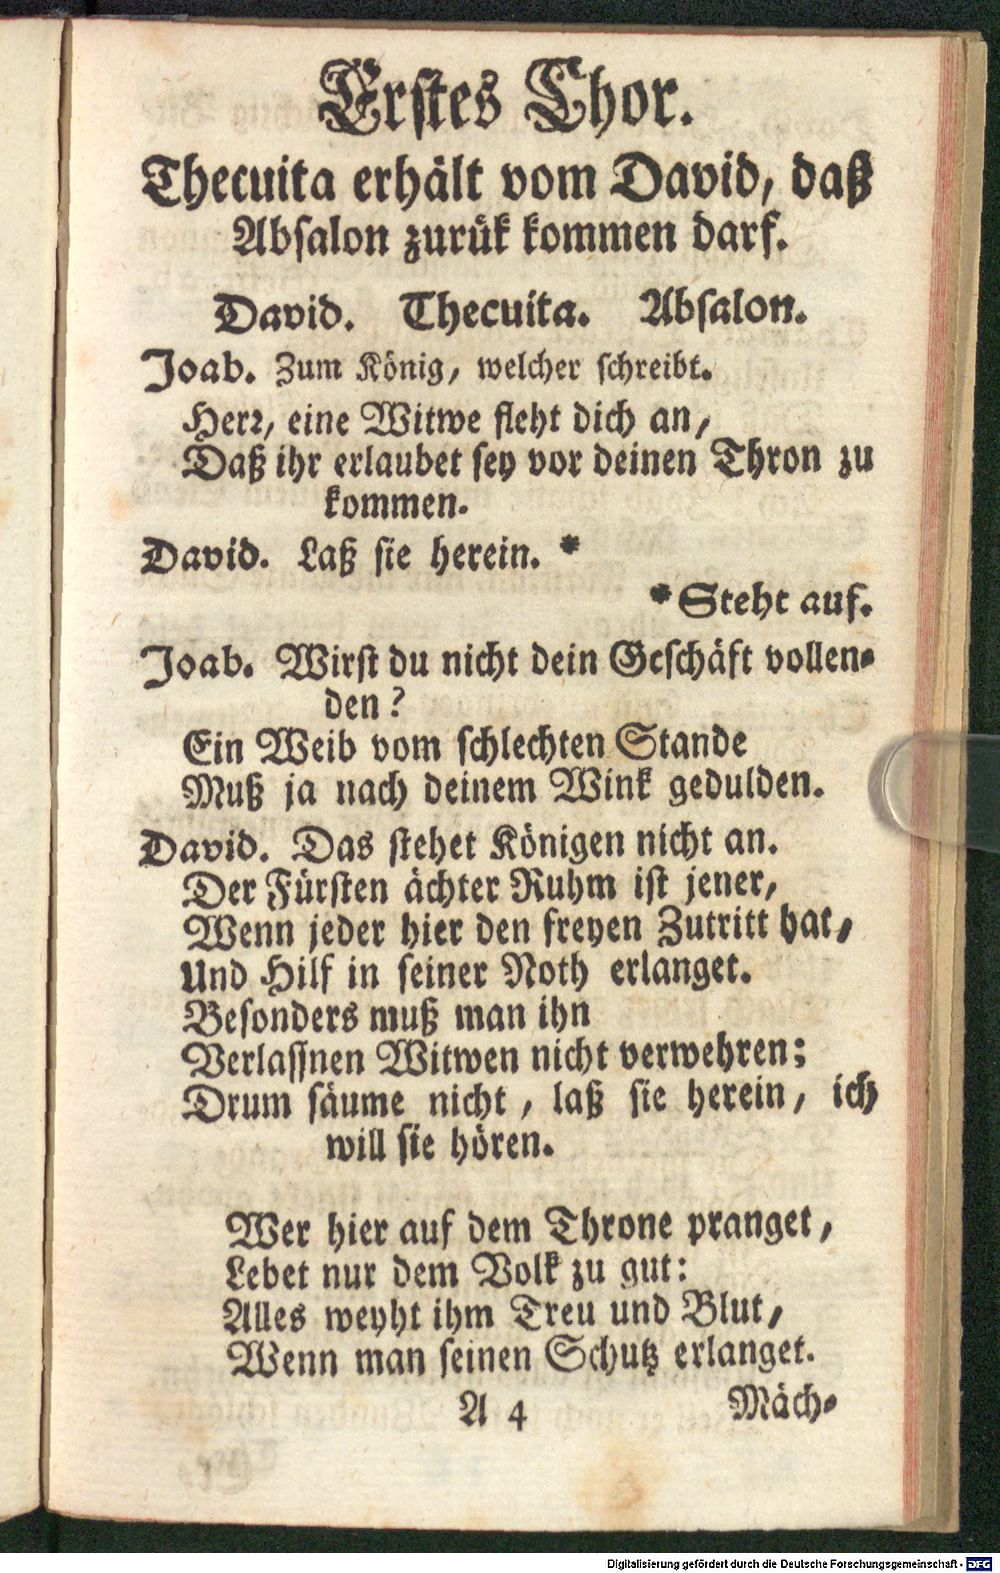 Erstes Chor.
Thecuita erhält vom David, daß
Absalon zurük kommen darf.
David. Thecuita. Absalon.
Joab. Zum König, welcher schreibt.
Herr, eine Witwe fleht dich an,
Daß ihr erlaubet sey vor deinen Thron zu
kommen.
David. Laß sie herein. *
* Steht auf.
Joab. Wirst du nicht dein Geschäft vollen-
den?
Ein Weib vom schlechten Stande
Muß ja nach deinem Wink gedulden.
David. Das stehet Königen nicht an.
Der Fürsten ächter Ruhm ist jener,
Wenn jeder hier den freyen Zutritt hat,
Und Hilf in seiner Noth erlanget.
Besonders muß man ihn
Verlassnen Witwen nicht verwehren;
Drum säume nicht, laß sie herein, ich
will sie hören.
Wer hier auf dem Throne pranget,
Lebet nur dem Volk zu gut:
Alles weyht ihm Treu und Blut,
Wenn man seinen Schutz erlanget.
A 4 Mäch-
Digitalisierung gefördert durch die Deutsche Forschungsgemeinschaft - DFG